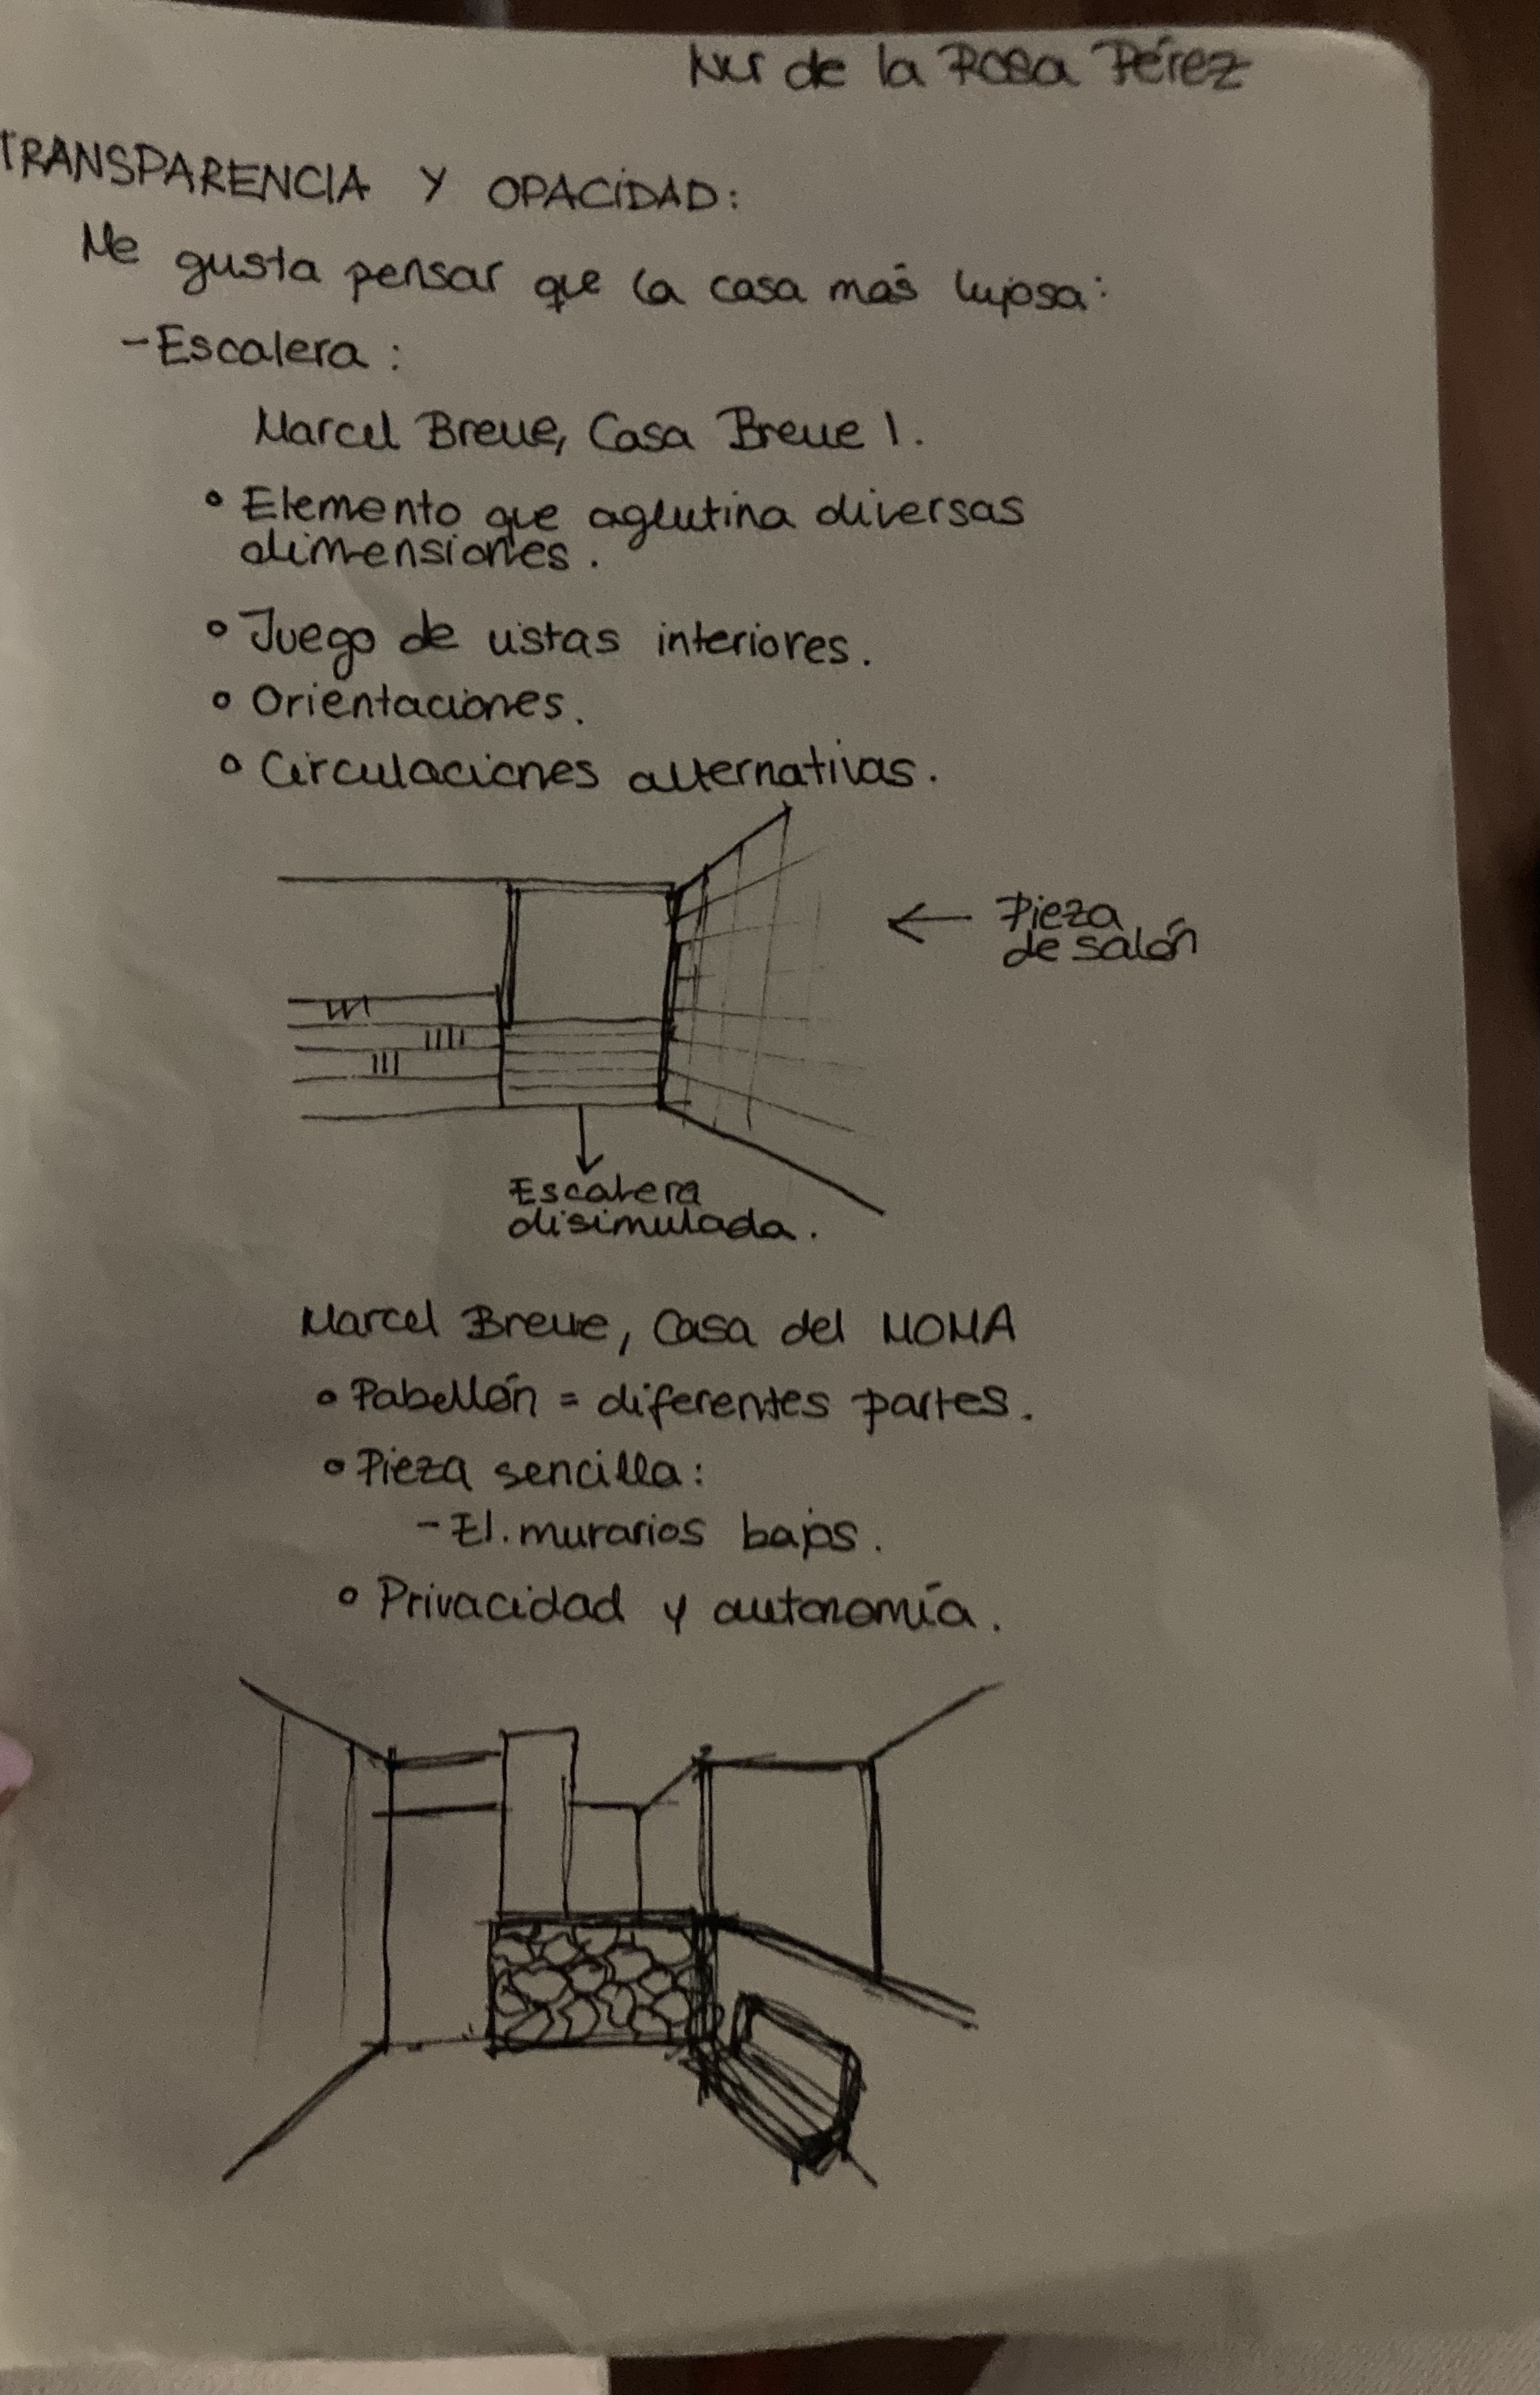 Nur de la Rosa Pérez
TRANSPARENCIA Y OPACIDAD:
Me gusta pensar que la casa más lujosa:
-Escalera:
Marcel Breue, Casa Breue 1.
• Elemento que aglutina diversas
dimensiones.
• Juego de vistas interiores.
• Orientaciones.
• Circulaciones alternativas.
← Pieza
de salón
Escalera
disimulada.
Marcel Breue, Casa del MOMA
• Pabellón = diferentes partes.
• Pieza sencilla:
- El. murarios bajos.
• Privacidad y autonomía.